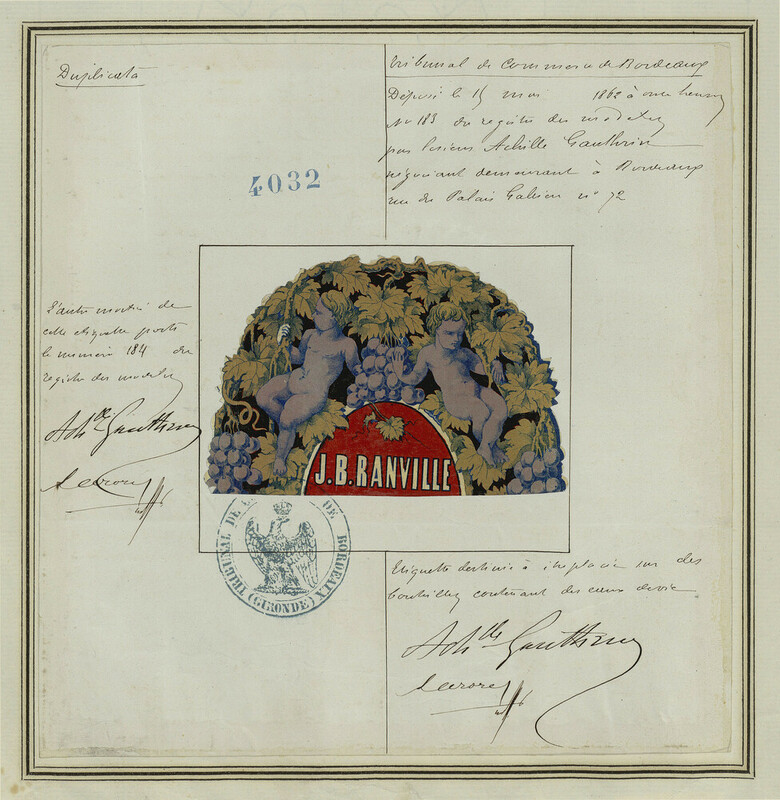 Duplicata
Tribunal de Commerce de Bordeaux
Déposé le 15 mai 1862 à onze heures
No 183 du registre des modèles
par le sieur Achille Gauthrin
négociant demeurant à Bordeaux
rue du Palais Galien no 72
4032
L'autre moitié de
cette étiquette porte
le numéro 184 du
registre des modèles
Achlle Gauthrin
J.B.RANVILLE
TRIBUNAL DE C DE BORDEAUX
(GIRONDE)
Etiquette destinée à être placée sur des
bouteilles contenant des eaux de vie
Achlle Gauthrin